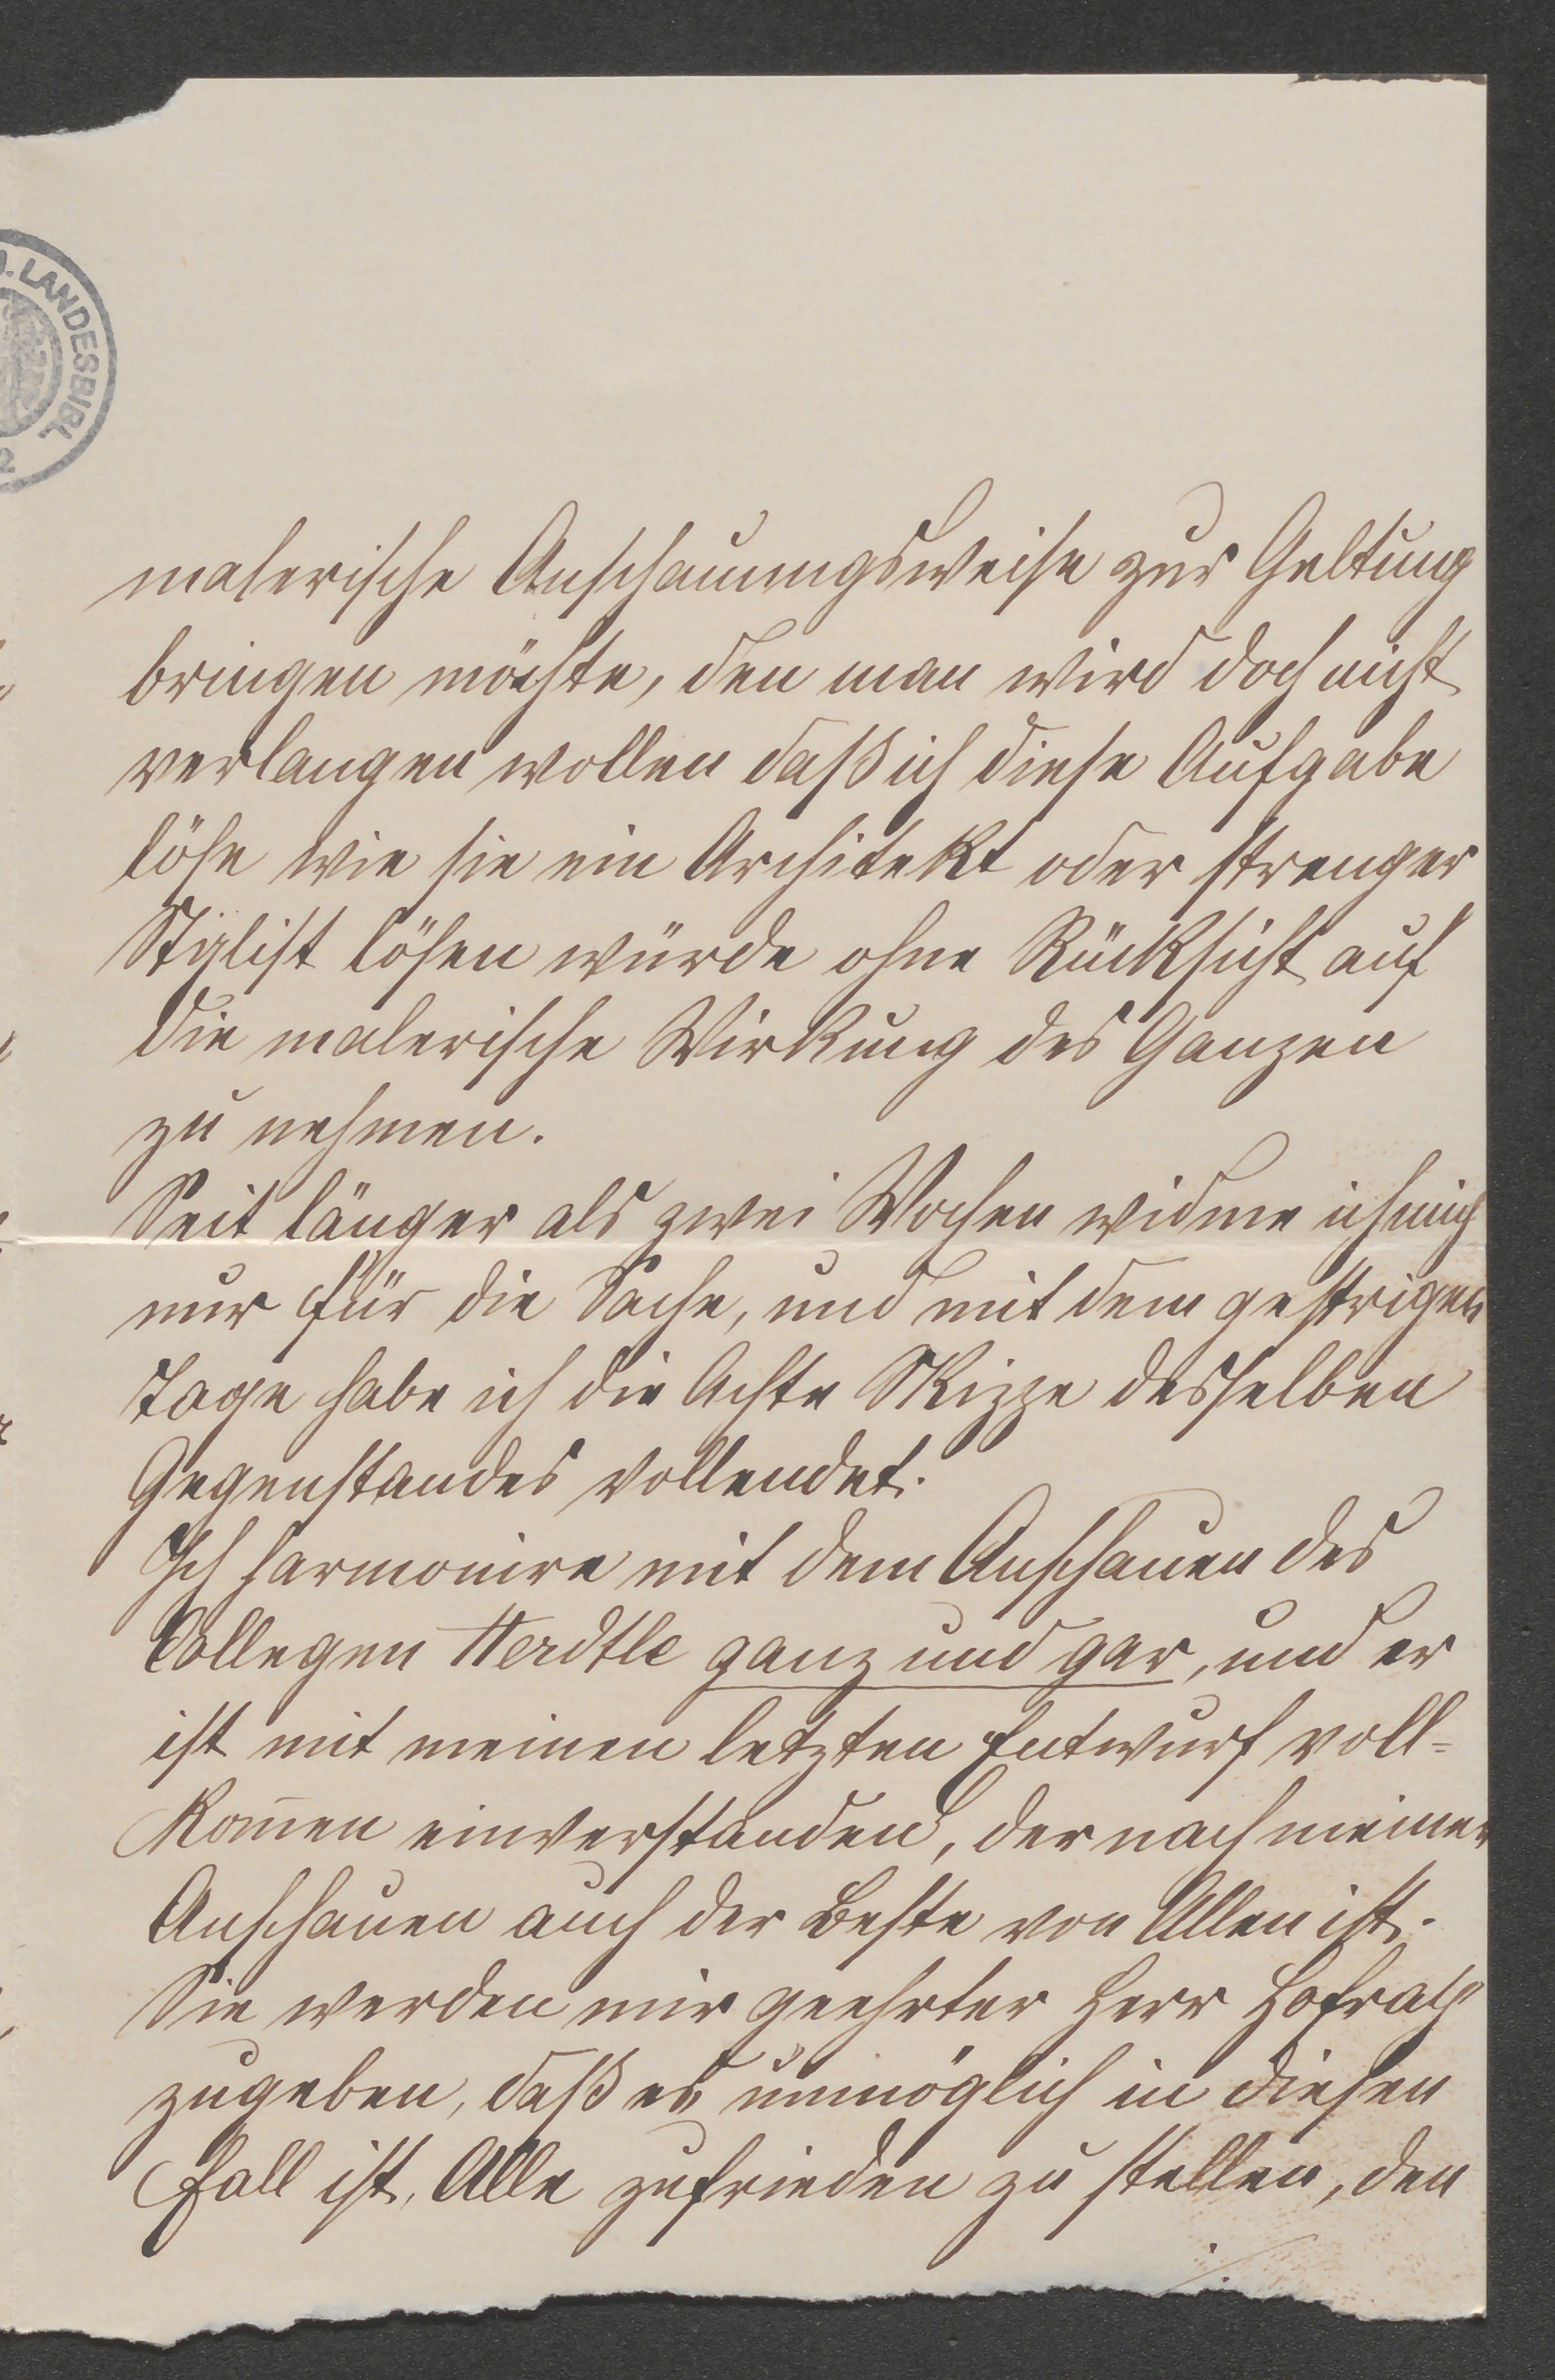 . LANDESBIBL.
2
malerische Anschauungsweise zur Geltung
bringen möchte, den man wird doch nicht
verlangen wollen daß ich diese Aufgabe
löse wie sie ein Architekt oder strenger
Stylist lösen würde ohne Rücksicht auf
die malerische Wirkung des Ganzen
zu nehmen.
Seit länger als zwei Wochen widme ich mich
nur für die Sache, und mit dem gestrigen
Tage habe ich die Achte Skizze desselben
Gegenstandes vollendet.
Ich harmonire mit dem Anschauen des
Collegen Herdtle ganz und gar, und er
ist mit meinen letzten Entwurf voll-
kom̄en einverstanden, der nach meinen
Anschauen auch der Beste von Allen ist.
Sie werden mir geehrter Herr Hofrath
zugeben, daß es unmöglich in diesen
Fall ist, Alle zufrieden zu stellen, den
./.